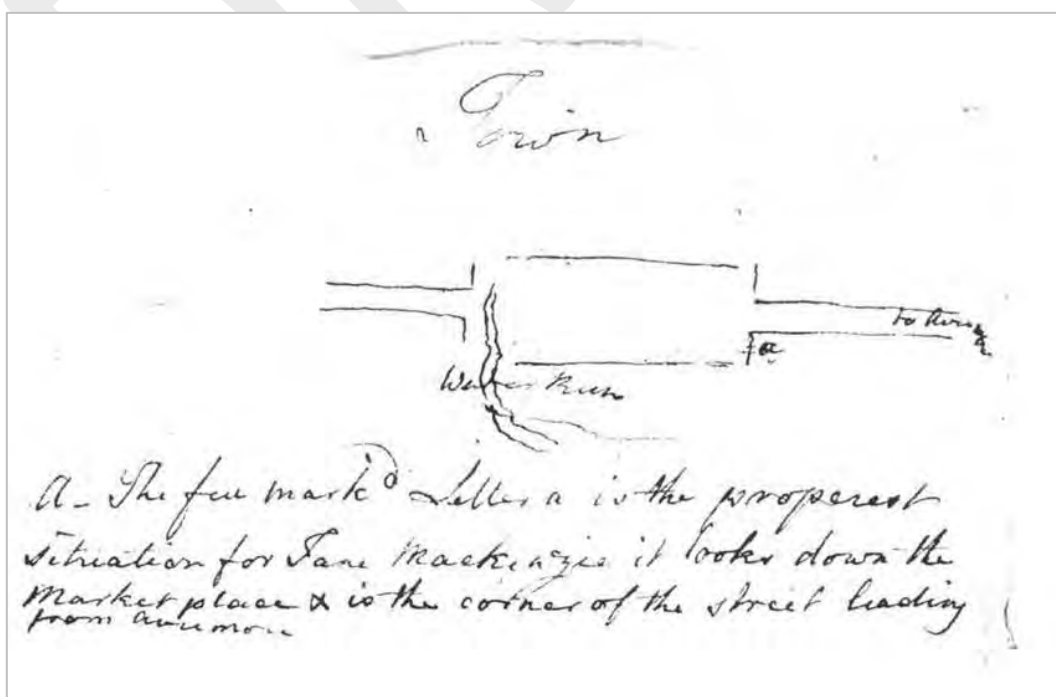 Town
to
a
Water Run
A - The feu mark'd Letter a is the properest
situation for Jane Mackenzie it looks down the
Market place & is the corner of the street leading
from Aviemore